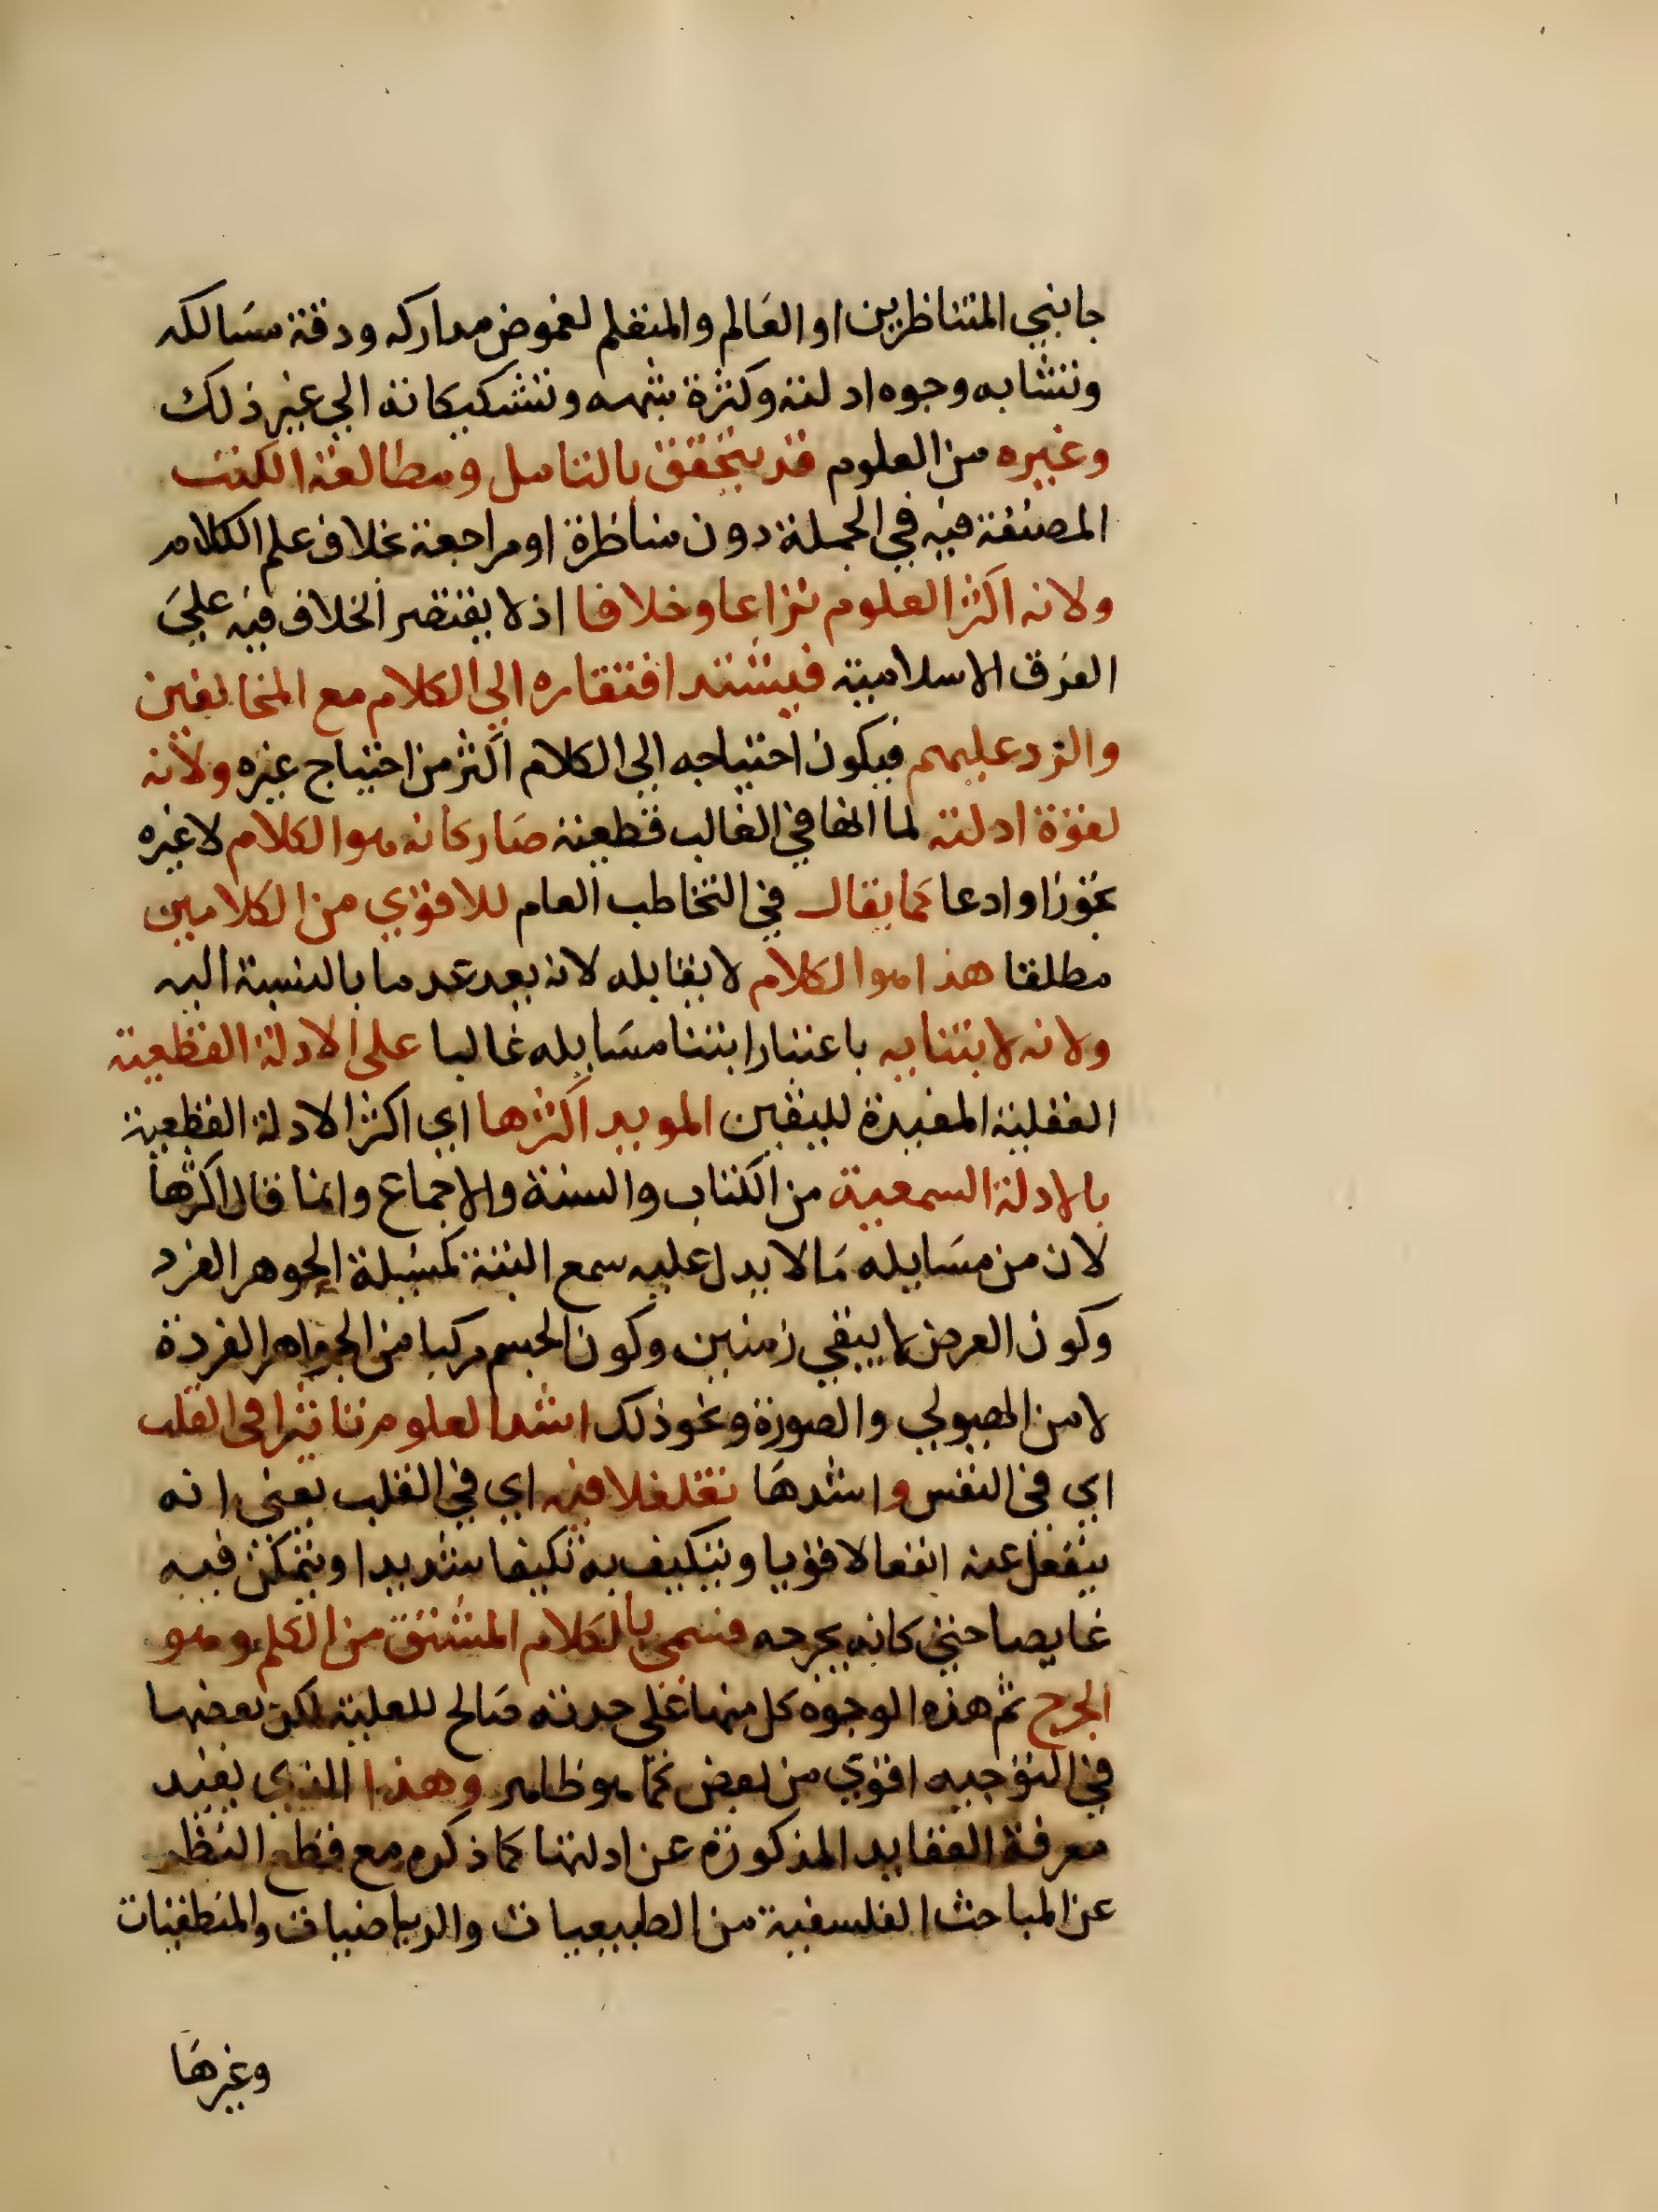 جانبي المتناظرين او العالم والمتعلم لغموض مداركه ودقة مسالكه
وتشابه وجوه ادلته وكثرة شبهه وتشكيكاته الي غير ذلك
وغيره من العلوم قد يتحقق بالتامل ومطالعة الكتب
المصنفة فيه في الجملة دون مناظرة او مراجعة بخلاف علم الكلام
ولانه اكثر العلوم نزاعا وخلافا اذ لا يقتصر الخلاف فيه علي
الفرق الاسلامية فيشتد افتقاره الي الكلام مع المخالفين
والرد عليهم فيكون احتياجه الي الكلام اكثر من احتياج غيره ولانه
لقوة ادلته لما انها في الغالب قطعية صار كانه هو الكلام لا غيره
تجوزا وادعا كما يقال في التخاطب العام للاقوي من الكلامين
مطلقا هذا هو الكلام لا يقابله لانه يعد عدما بالنسبة اليه
ولانه لابتنايه باعتبار ابتنا مسايله غالبا علي الادلة القطعية
العقلية المفيدة لليقين المويد اكثرها اي اكثر الادلة القطعية
بالادلة السمعية من الكتاب والسنة والاجماع وانما قال اكثرها
لان من مسايله ما لا يدل عليه سمع البتة كمسيلة الجوهر الفرد
وكون العرض لا يبقي زمنين وكون الجسم مركبا من الجواهر الفردة
لا من الهيولي والصورة ونحو ذلك اشد العلوم تاثيرا في القلب
اي في النفس واشدها تغلغلا فيه اي في القلب يعني انه
ينفعل عنه انفعالا قويا ويتكيف به تكيفا شديدا ويتمكن فيه
غايصا حتي كانه يجرحه فسمي بالكلام المشتق من الكلم وهو
الجرح ثم هذه الوجوه كل منها علي حدته صالح للعلية لكن بعضها
في التوجيه اقوي من بعض كما هو ظاهر وهذا الذي يفيد
معرفة العقايد المذكورة عن ادلتها كما ذكره مع قطع النظر
عن المباحث الفلسفية من الطبيعيات والرياضيات والمنطقيات
وغيرها